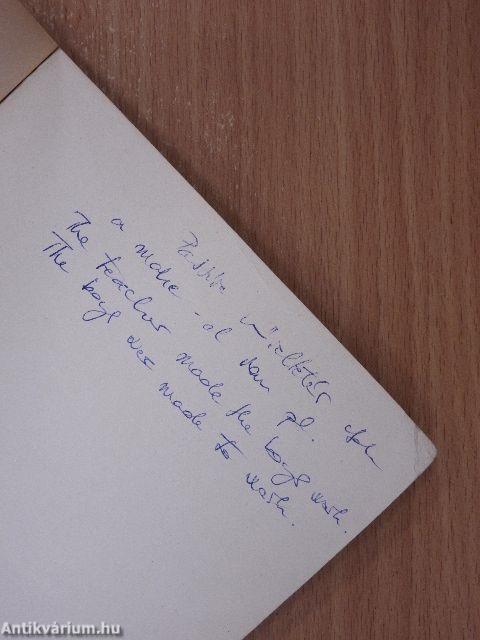 Passiv műveltetés csak
a make-el van pl.
The teacher made the boys wash.
The boys were made to wash.
Antikvárium.hu